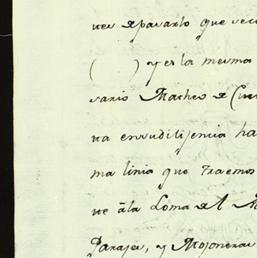 nes de pararlo que se
( ) y es la mesma
sario Matheo de
na en su dilijencia ha
ma linia que traemos
ne â la Loma del
Parajes, y Mojoneras